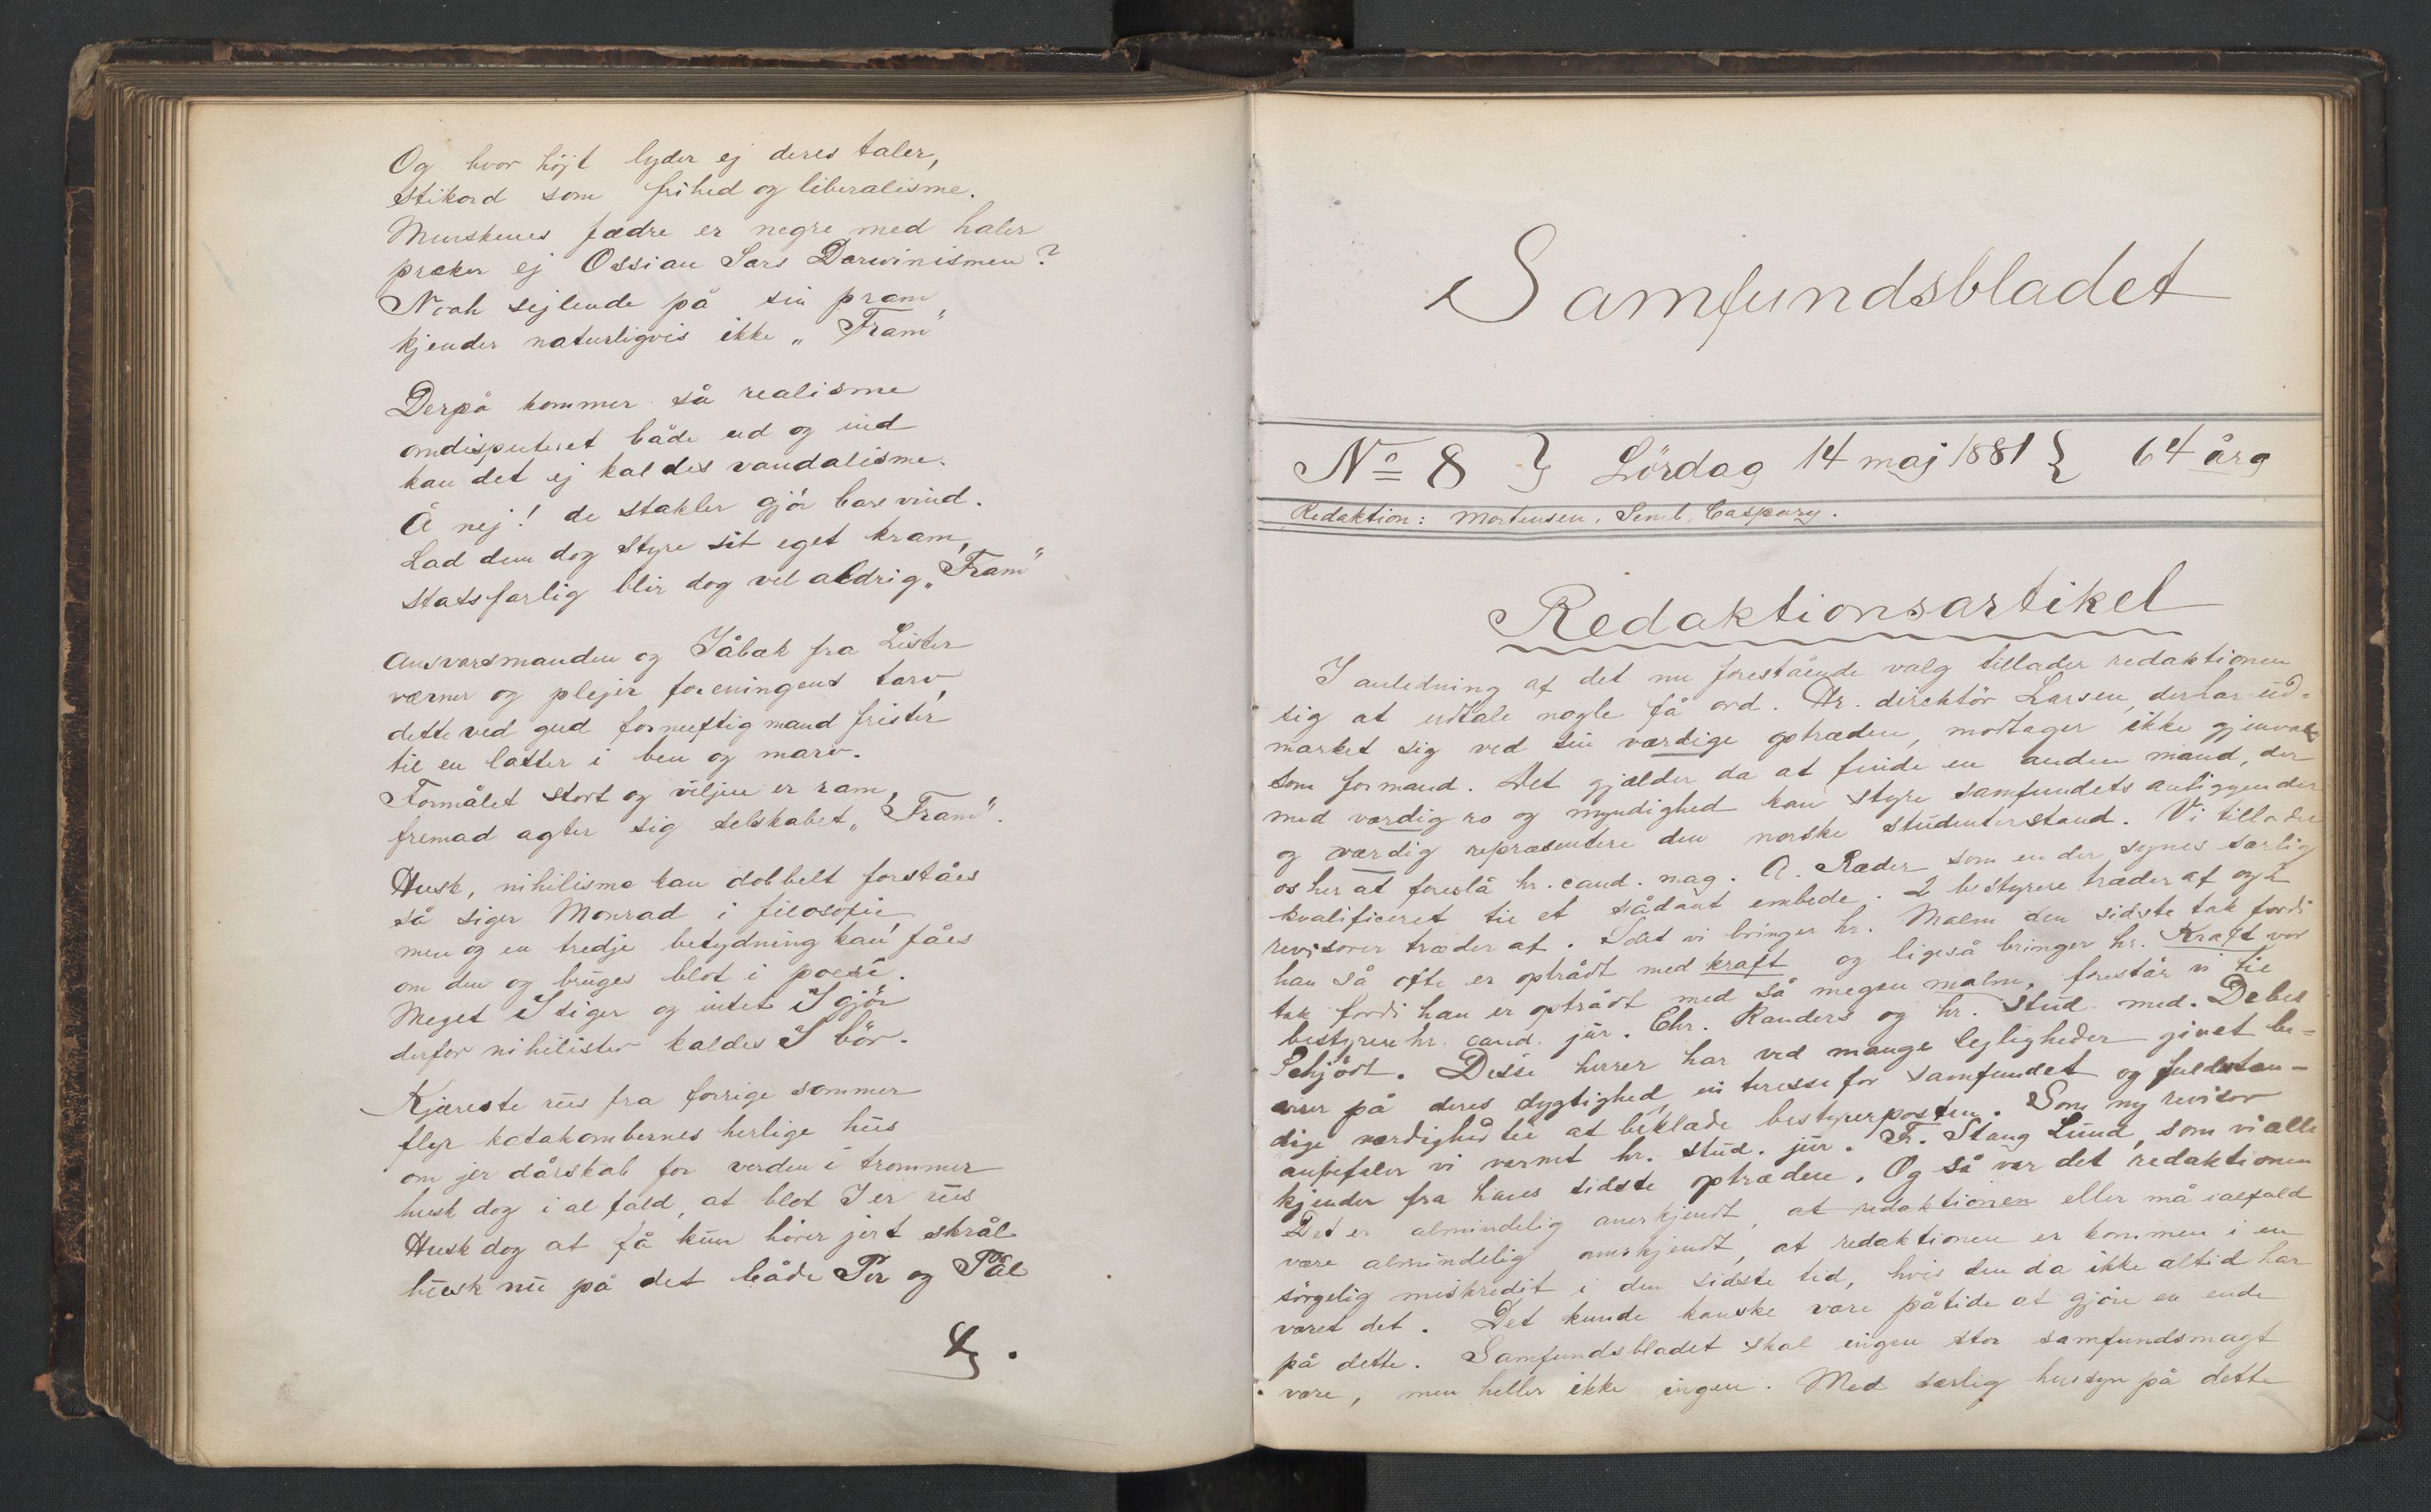 Og hvor höjt lyder ej deres taler,
stikord som frihed og liberalisme.
Menskenes fædre er negre med haler
præker ej Ossian Sars Darwinismen?
Noah sejlende på sin pram
kjender naturligvis ikke „Fram"
Derpå kommer så realisme
omdisputeret både ud og ind
kan det ej kaldes vandalisme.
Å nej! de stakler gjör bare vind.
Lad dem dog styre sit eget kram,
statsfarlig blir dog vel aldrig „Fram"
Ansvarsmanden og Jåbæk fra Lister
værner og plejer foreningens tarv,
dette ved gud fornuftig mand frister
til en latter i ben og marv.
Formålet stort og viljen er ram,
fremad agter sig selskabet „Fram".
Husk, nihilisme kan dobbelt forståes
så siger Monrad i filosofie,
men og en tredje betydning kan fåes
om den og bruges blot i poesi.
Meget I siger og intet I gjör
derfor nihilister kaldes I bör.
Kjæreste rus fra forrige sommer
flyr katakombernes herlige hus
om jer dårskab for verden i trommer
husk dog i al fald, at blot I er rus
Husk dog at få kun hörer jert skrål
husk nu på det både Per og Pål
Samfundsbladet
No 8 } Lördag 14 maj 1881 { 64 årg
Redaktion: Mortensen, Semb, Caspary.
Redaktionsartikel
I anledning af det nu forestående valg tillader redaktionen
sig at udtale nogle få ord. Hr. direktör Larsen, der har ud-
mærket sig ved sin værdige optræden, modtager ikke gjenvalg
som formand. Det gjælder da at finde en anden mand, der
med værdig ro og myndighed kan styre samfundets anliggender
og værdig repræsentere den norske studenterstand. Vi tillader
os her at foreslå hr. cand. mag. A. Ræder som en der synes særlig
kvalificeret til et sådant embede. 2 bestyrere træder af og 2
revisorer træder af. Idet vi bringer hr. Malm den sidste tak fordi
han så ofte er optrådt med kraft og ligeså bringer hr. Kraft vor
tak fordi han er optrådt med så megen malm, foreslår vi til
bestyrere hr. cand. jur. Chr. Randers og hr. stud. med. Debes
Schjödt. Disse herrer har ved mange lejligheder givet be-
viser på deres dygtighed, interesse for samfundet og fuldstæn-
dige værdighed til at beklæde bestyrerposten. Som ny revisor
anbefaler vi varmt hr. stud. jur. Fr. Stang Lund, som vi alle
kjender fra hans sidste optræden. Og så var det redaktionen
Det er almindelig anerkjendt, at redaktionen eller må ialfald
være almindelig anerkjendt, at redaktionen er kommen i en
sörgelig miskredit i den sidste tid, hvis den da ikke altid har
været det. Det kunde kanske være påtide at gjöre en ende
på dette. Samfundsbladet skal ingen stor samfundsmagt
være, men heller ikke ingen. Med særlig hensyn på dette